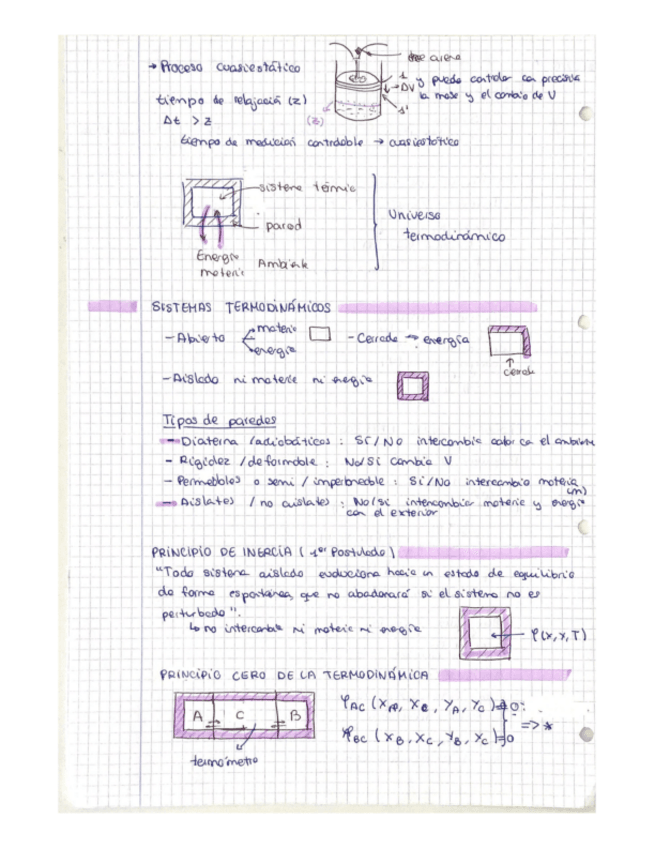 → Proceso cuasiestático
de arena
y puedo controlar con precisión
la masa y el cambio de V
ΔV
tiempo de relajación (z)
Δt > z
(z)
tiempo de medición controlable → cuasiestático
sistema térmic
pared
Universo
termodinámico
Energía
materia
Ambiente
SISTEMAS TERMODINÁMICOS
- Abierto
materia
energía
- Cerrado → energía
cerrado
- Aislado ni materia ni energía
Tipos de paredes
- Diaterma /adiabáticos : Sí/No intercambia calor con el ambiente
- Rigidez /deformable : No/Sí cambia V
- Permeables o semi / impermeable : Sí/No intercambio materia
(m)
- Aislates / no aislates : No/si intercambia materia y energía
con el exterior
PRINCIPIO DE INERCIA ( 1er Postulado )
"Todo sistema aislado evoluciona hacia un estado de equilibrio
de forma espontánea, que no abadonará si el sistema no es
perturbado".
↳ no intercambia ni materia ni energía
φ(x,x,T)
PRINCIPIO CERO DE LA TERMODINÁMICA
A C B
termómetro
φAC (XA, XC, YA, YC)=0
φBC (XB, XC, YB, YC)=0
=> *